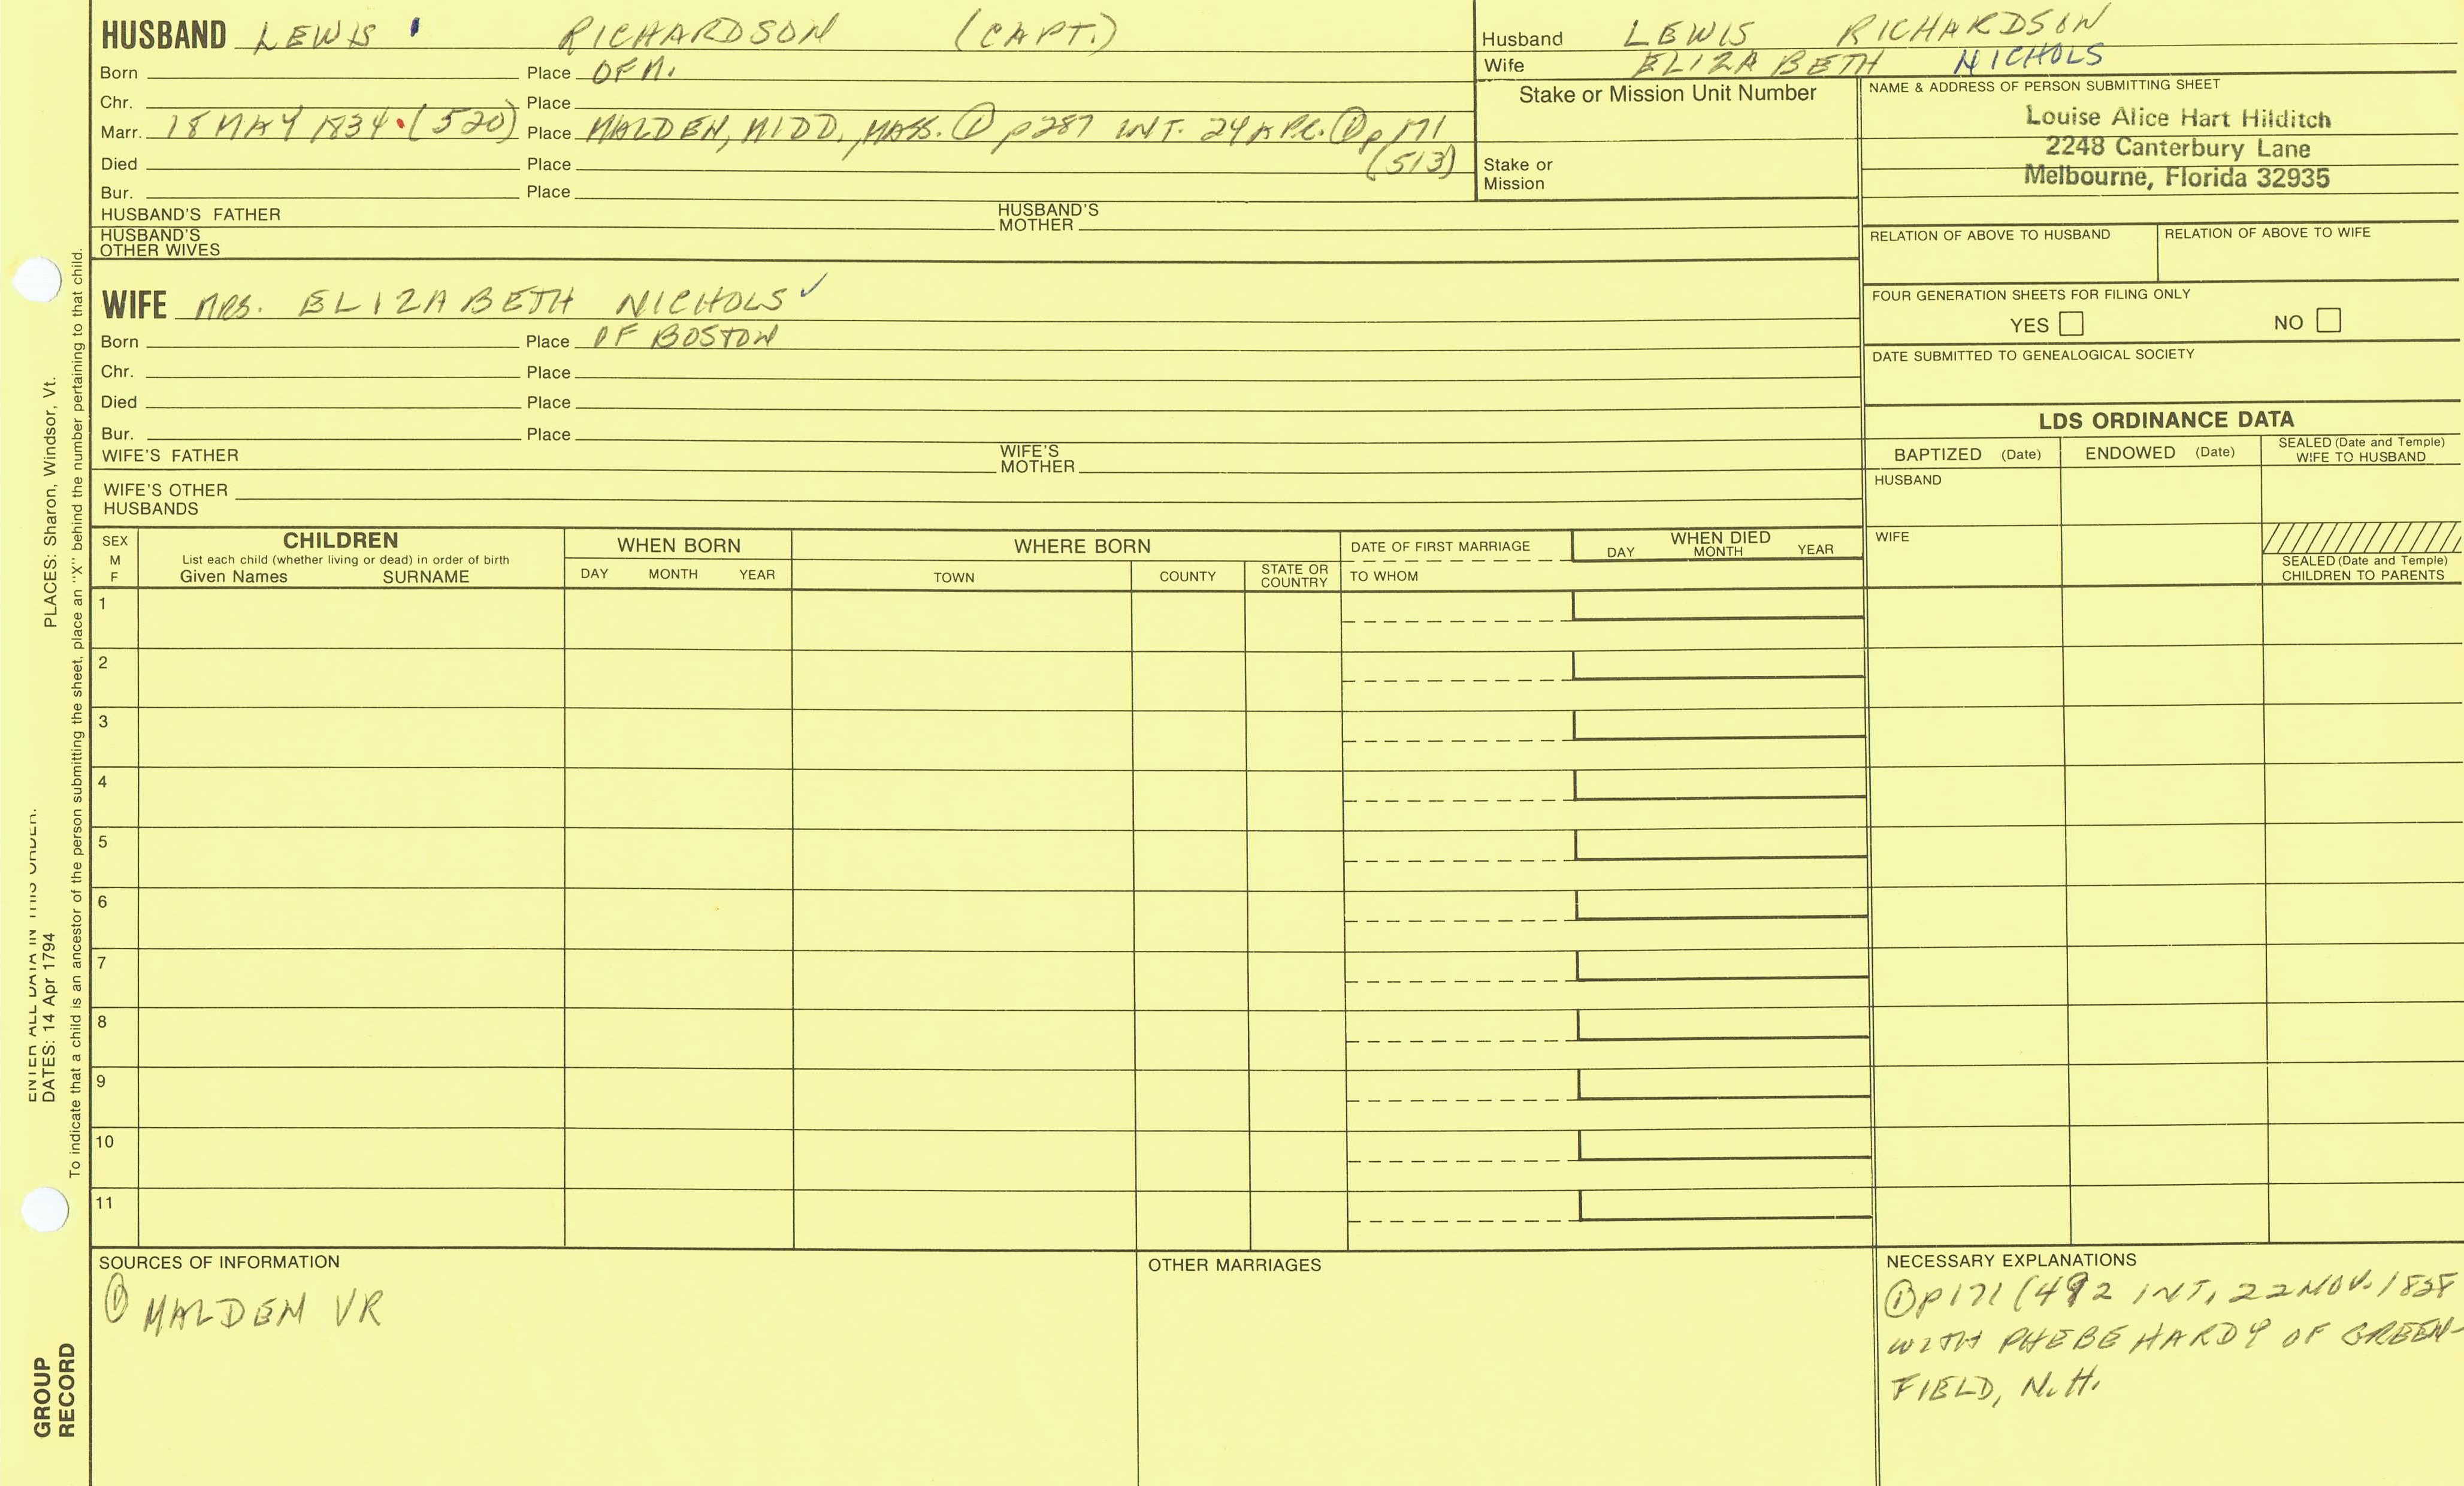 HUSBAND LEWIS RICHARDSON (CAPT.)
Born Place OF M.
Chr. Place
Marr. 18 MAY 1834 (520) Place MALDEN, MIDD., MASS. ① p287 INT. 24 APR. ① p171
(513)
Died Place
Bur. Place
HUSBAND'S FATHER HUSBAND'S MOTHER
HUSBAND'S
OTHER WIVES
Husband LEWIS RICHARDSON
Wife ELIZABETH NICHOLS
Stake or Mission Unit Number
Stake or
Mission
NAME & ADDRESS OF PERSON SUBMITTING SHEET
Louise Alice Hart Hilditch
2248 Canterbury Lane
Melbourne, Florida 32935
RELATION OF ABOVE TO HUSBAND RELATION OF ABOVE TO WIFE
FOUR GENERATION SHEETS FOR FILING ONLY
YES NO
DATE SUBMITTED TO GENEALOGICAL SOCIETY
WIFE MRS. ELIZABETH NICHOLS ✓
Born Place OF BOSTON
Chr. Place
Died Place
Bur. Place
WIFE'S FATHER WIFE'S MOTHER
WIFE'S OTHER
HUSBANDS
LDS ORDINANCE DATA
BAPTIZED (Date) ENDOWED (Date) SEALED (Date and Temple) WIFE TO HUSBAND
HUSBAND
WIFE
SEALED (Date and Temple)
CHILDREN TO PARENTS
SEX
M
F
CHILDREN
List each child (whether living or dead) in order of birth
Given Names SURNAME
WHEN BORN
DAY MONTH YEAR
WHERE BORN
TOWN COUNTY STATE OR COUNTRY
DATE OF FIRST MARRIAGE
TO WHOM
WHEN DIED
DAY MONTH YEAR
1
2
3
4
5
6
7
8
9
10
11
SOURCES OF INFORMATION
① MALDEN VR
OTHER MARRIAGES
NECESSARY EXPLANATIONS
① P171 (492 INT, 22 NOV.
WITH PHEBE HARDY OF GREEN-
FIELD, N.H.
ENTER ALL DATA IN THIS ORDER.
DATES: 14 Apr 1794 PLACES: Sharon, Windsor, Vt.
To indicate that a child is an ancestor of the person submitting the sheet, place an "X" behind the number pertaining to that child.
GROUP
RECORD